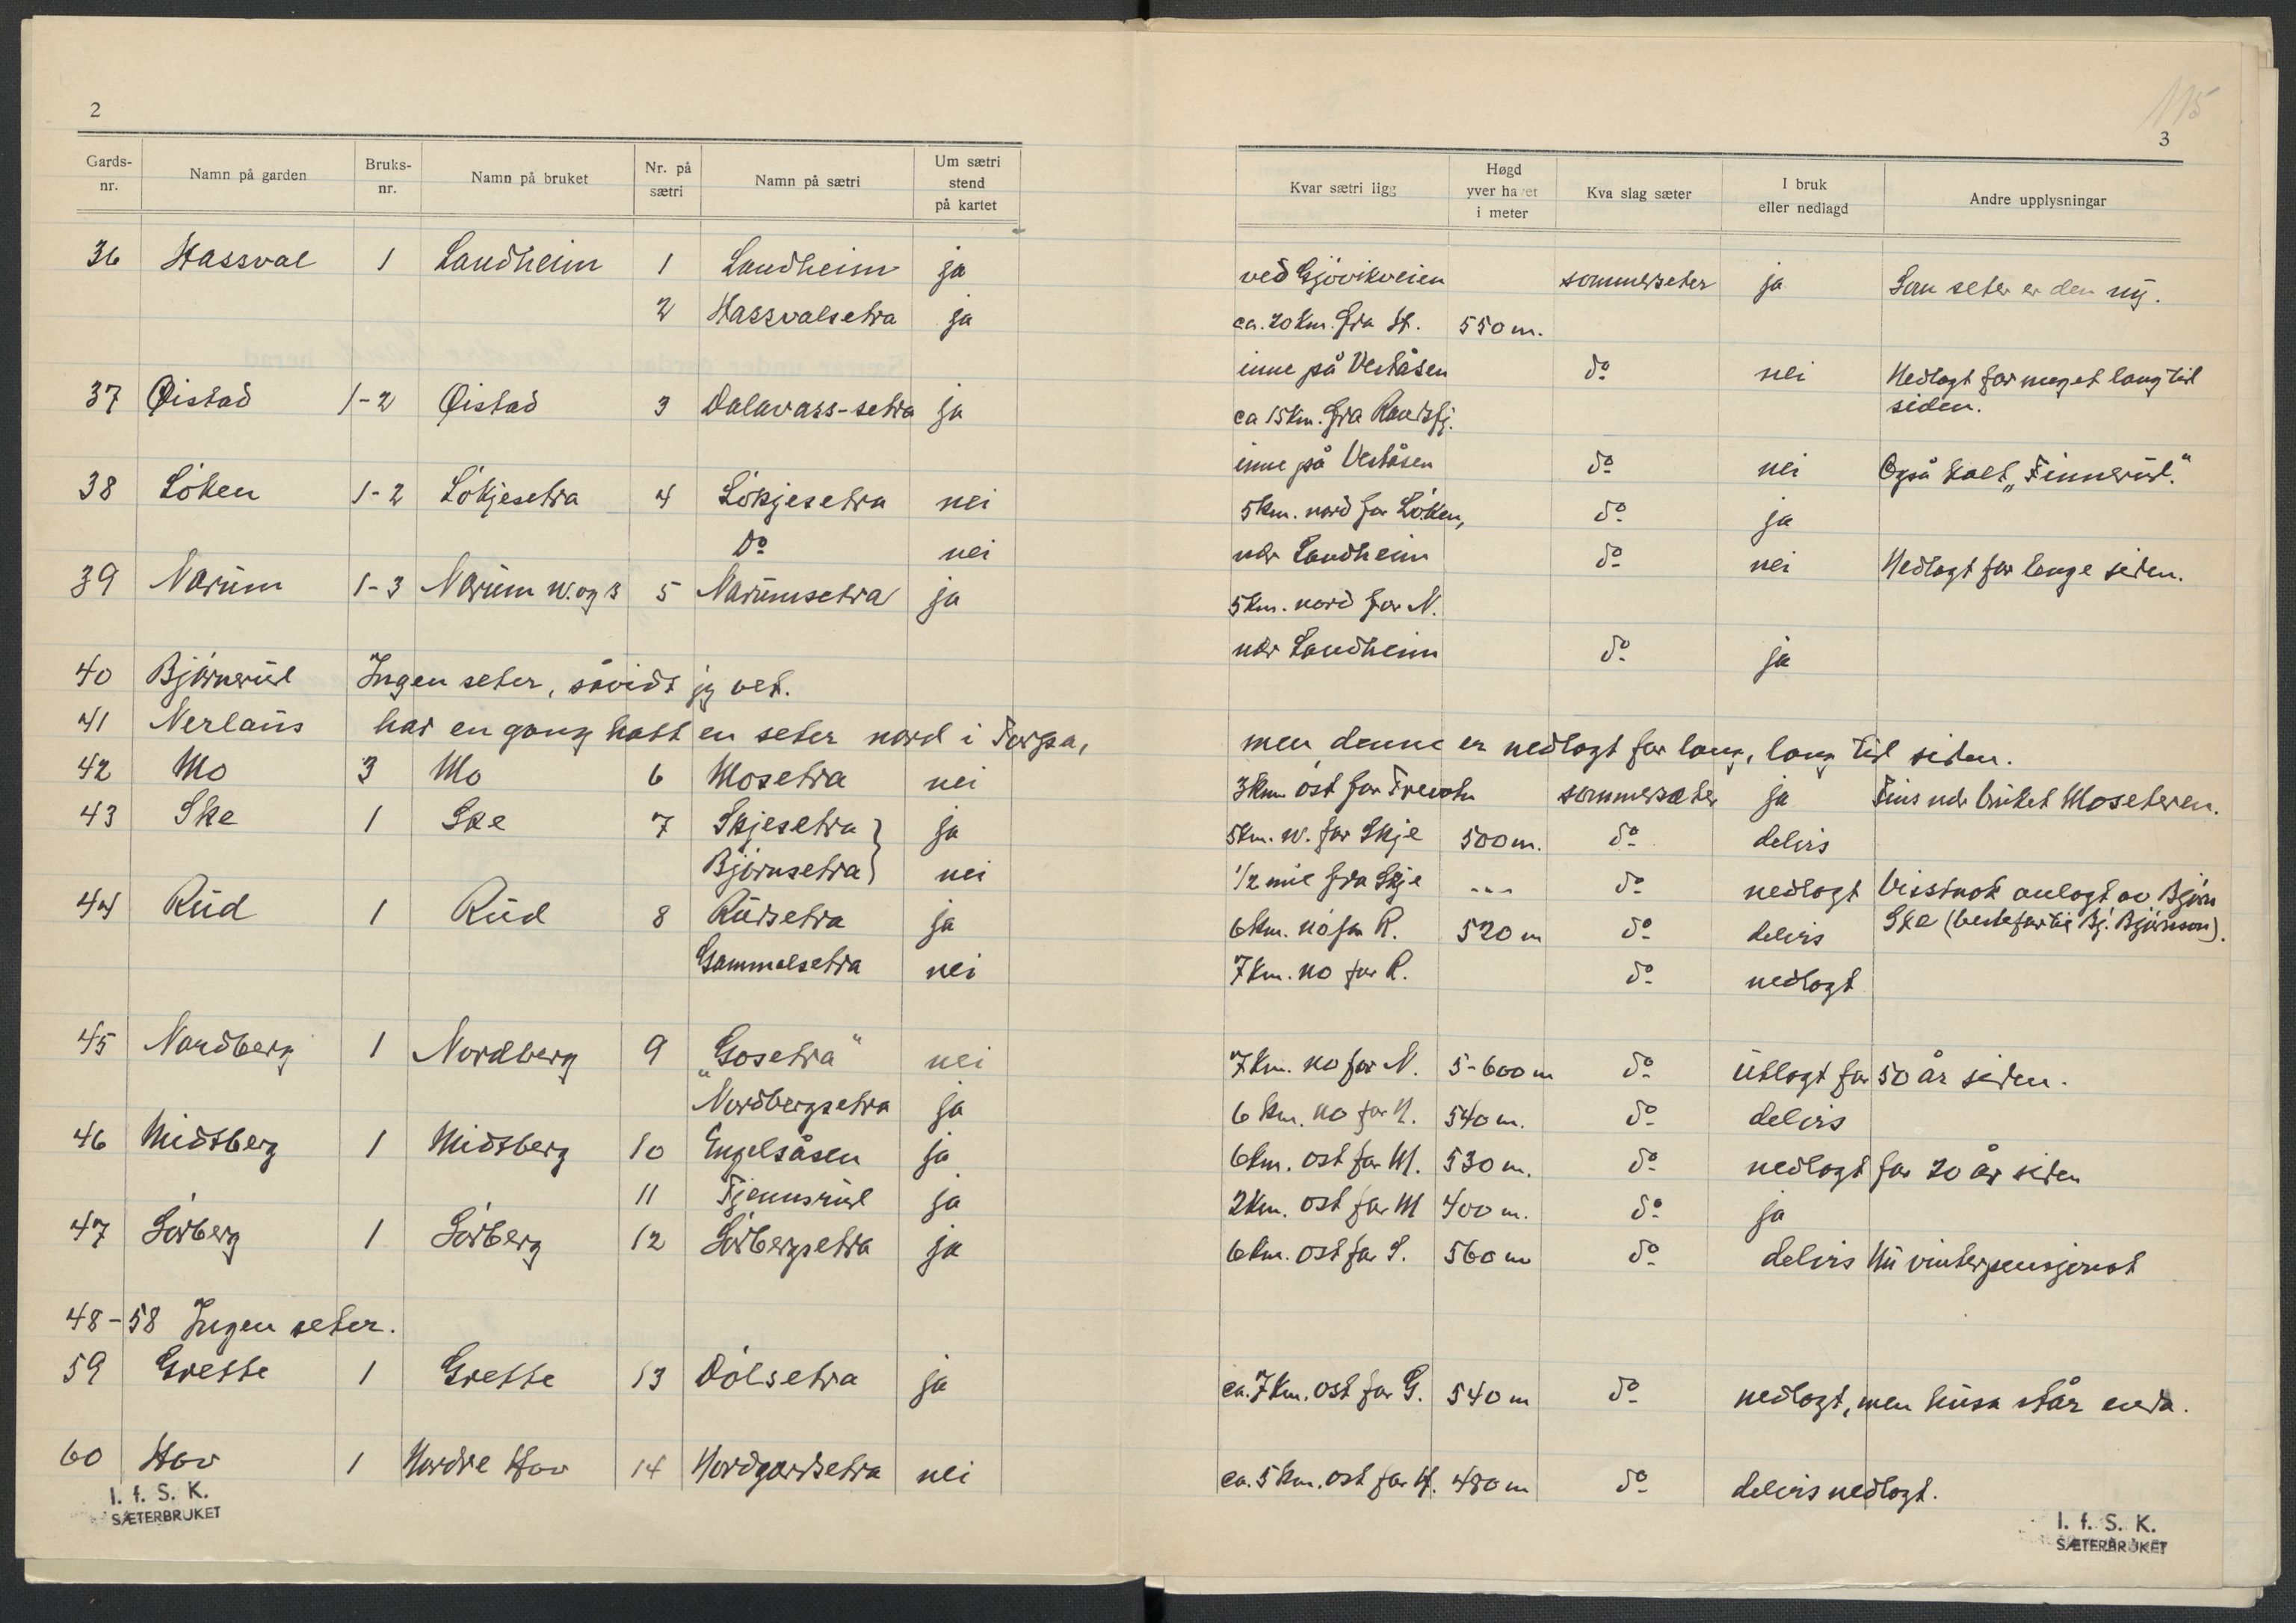 2
Gards-nr. Namn på garden Bruks-nr. Namn på bruket Nr. på sætri Namn på sætri Um sætri stend på kartet
36 Hassval 1 Landheim 1 Landheim ja
2 Hassvalsetra ja
37 Øistad 1-2 Øistad 3 Dalavass-setra ja
38 Löken 1-2 Lökjesetra 4 Lökjesetra nei
Do nei
39 Narum 1-3 Narum N. og S 5 Narumsetra ja
40 Björnerud Ingen seter, såvidt jeg vet.
41 Nerlaus har en gang hatt en seter nord i Torpa,
42 Mo 3 Mo 6 Mosetra nei
43 Ske 1 Ske 7 Skjesetra } ja
Björnsetra } nei
44 Rud 1 Rud 8 Rudsetra ja
Gammelsetra nei
45 Nordberg 1 Nordberg 9 „Gosetra" nei
Nordbergsetra ja
46 Midtberg 1 Midtberg 10 Engelsåsen ja
11 Tjennsrud ja
47 Sörberg 1 Sörberg 12 Sörbergsetra ja
48-58 Ingen seter.
59 Grette 1 Grette 13 Dölsetra ja
60 Hov 1 Nordre Hov 14 Nordgardsetra nei
I. f. S. K.
SÆTERBRUKET
115
3
Kvar sætri ligg Høgd yver havet i meter Kva slag sæter I bruk eller nedlagd Andre upplysningar
ved Gjövikveien sommerseter ja Som seter er den ny.
ca. 20 km. fra H. 550 m.
inne på Veståsen do nei Nedlagt for meget lang tid
siden.
ca 15 km. fra Randsfj.
inne på Veståsen do nei Også kalt „Finnerud."
5 km. nord for Löken, do ja
nær Landheim do nei Nedlagt for lenge siden.
5 km. nord for N.
nær Landheim do ja
men denne er nedlagt for lang, lang tid siden.
3 km öst for sommersæter ja Fins nær bruket Moseteren.
5 km. N. for Skje 500 m. do delvis
1/2 mil fra Skje - - - do nedlagt Visstnok anlagt av Björn
Ske (bestefar til Bj. Björnson).
6 km. nö for R. 520 m do delvis
7 km. no for R. do nedlagt
7 km. no for N. 5-600 m do utlagt for 50 år siden.
6 km. no for N. 540 m. do delvis
6 km. ost for M. 530 m. do nedlagt for 20 år siden
2 km. ost for M 400 m. do ja
6 km. ost for S. 560 m do delvis Nu vinterpensjonat
ca. 7 km. ost for G. 540 m do nedlagt, men husa står enda.
ca. 5 km. ost for H. 480 m do delvis nedlagt.
I. f. S. K.
SÆTERBRUKET